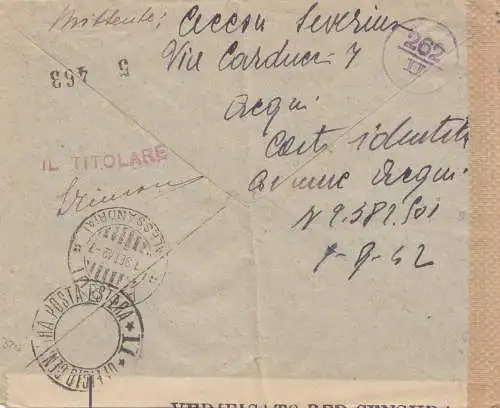 Mittente: Ceccon Severino
Via Carducci 7
Acqui
Carta identità
comune Acqui
N 9.382.501
1-9-42
262
II
5 463
IL TITOLARE
ALESSANDRIA
UFFICIO CENS
RA POSTA ESTERA
11
VERIFICATO PER CENSURA